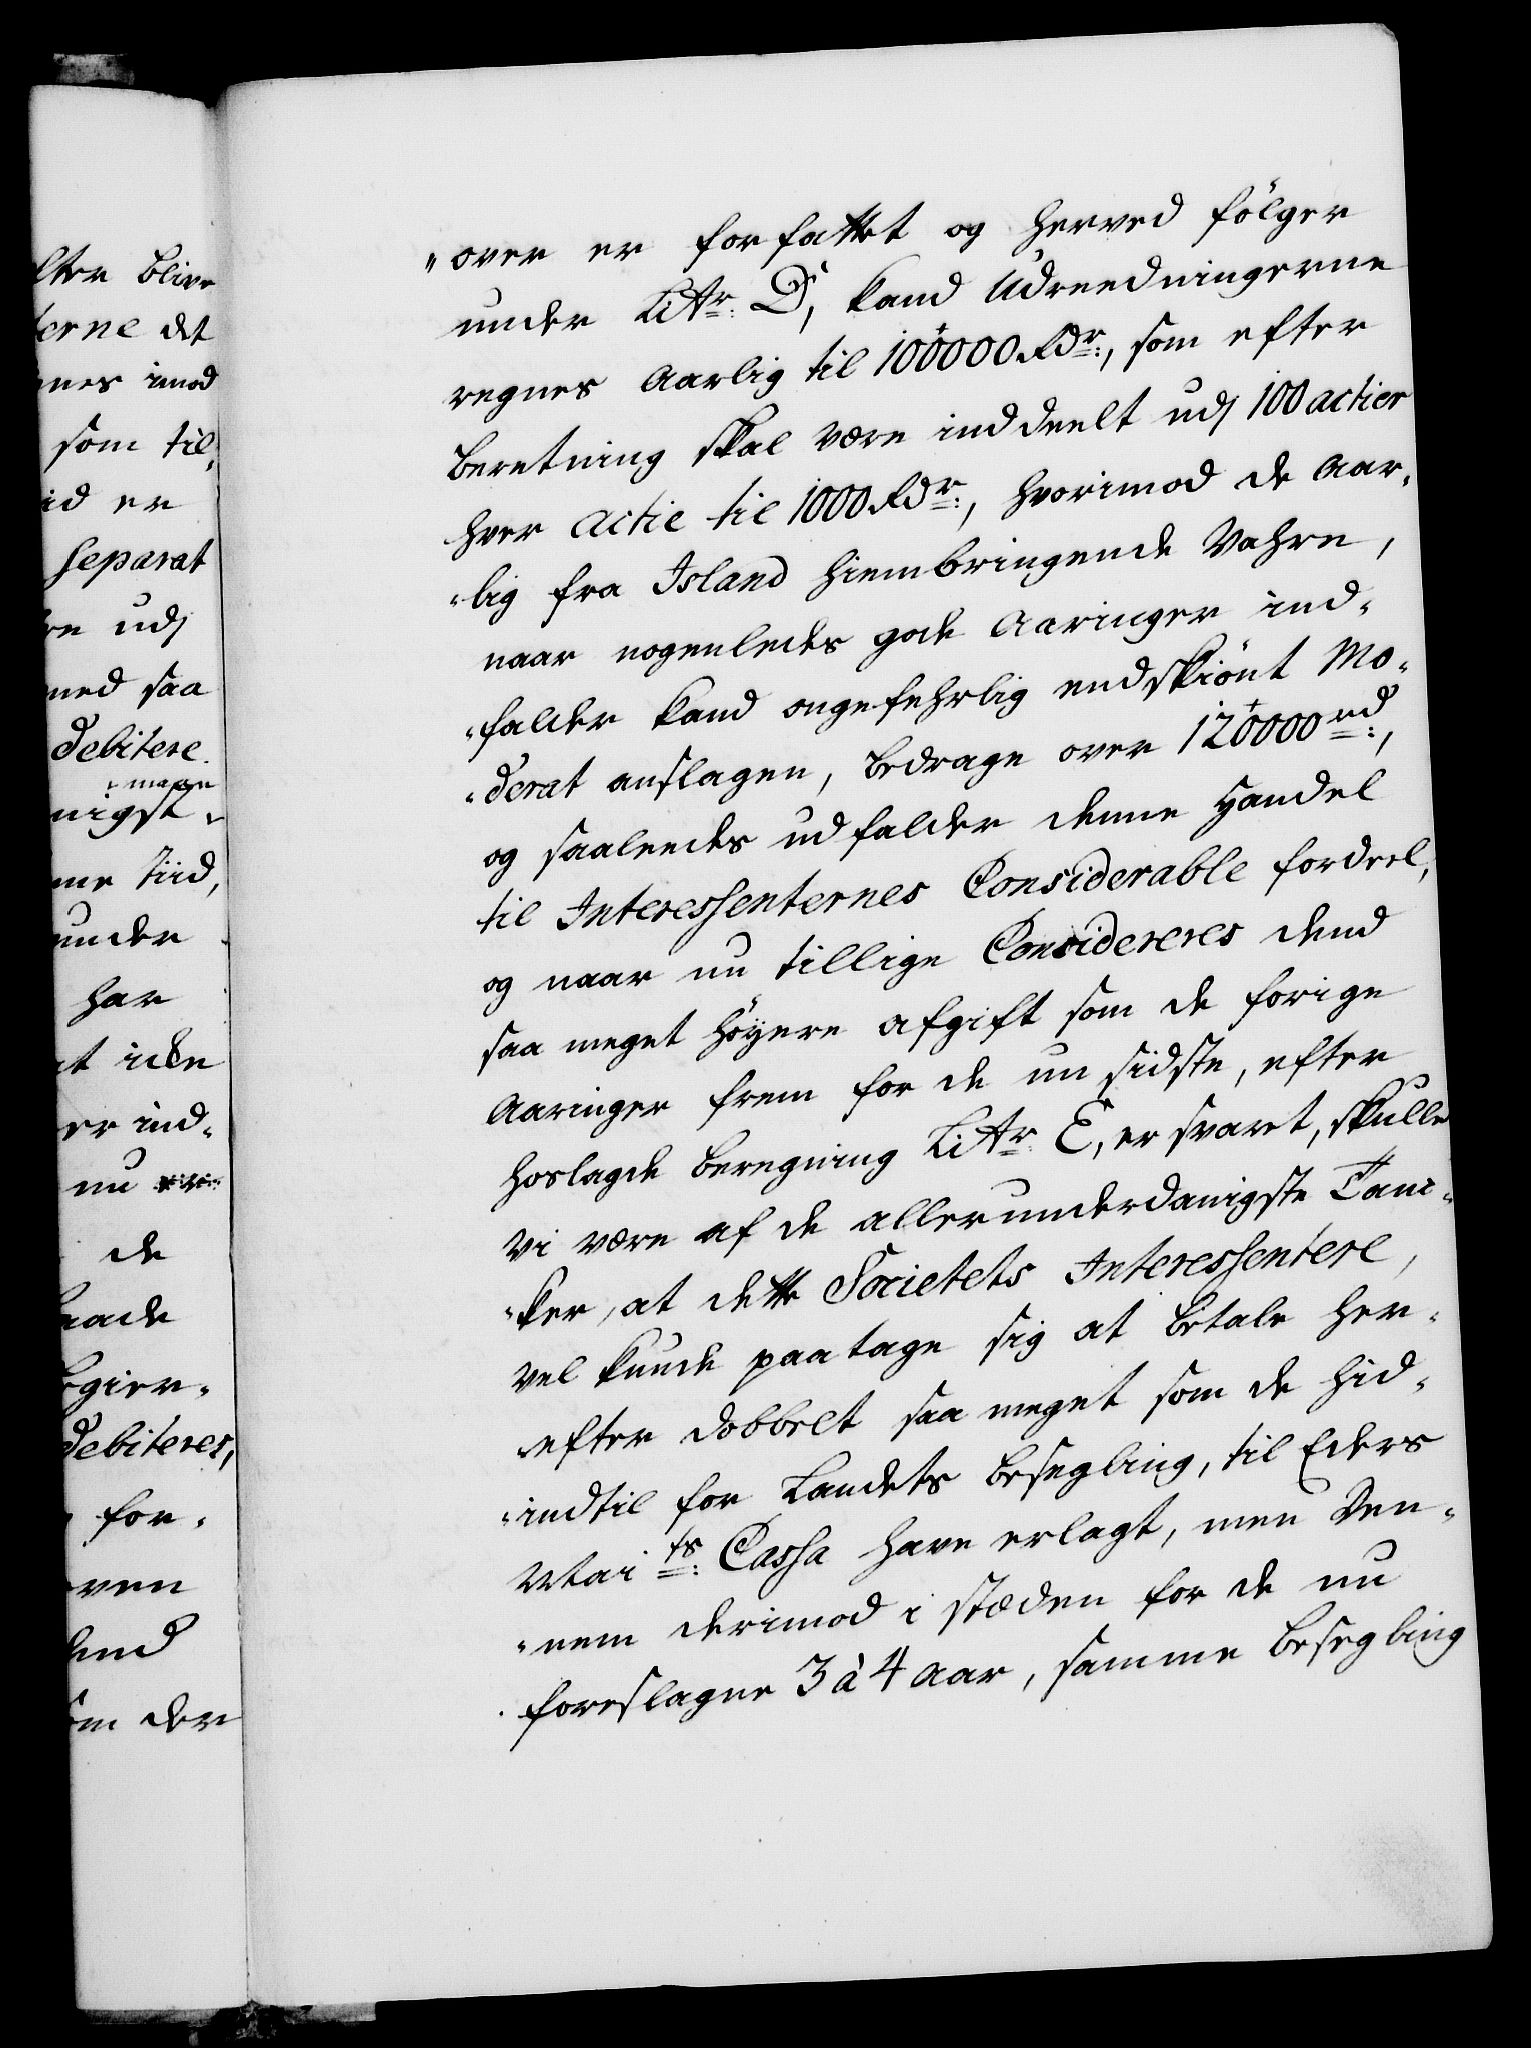 lter blive
terne det
nes imod
som til¸
id er
separat
re udj
med saa
debitere
mage
nigst¸
me tiid,
under
har
at icke
er ind¸
nu
de
aade
gier¸
debiteres,
for¸
ven
end
m der
„over er forfattet og herved fölger
under Littr: D, kand Udreedningerne
regnes Aarlig til 100000 Rdr:, som efter
beretning skal være inddeelt udj 100 actier
hver actie til 1000 Rdr:, hvorimod de Aar¸
„lig fra Island hiembringende Vahre,
naar nogenledes gode Aaringer ind¸
„falder kand ongefehrlig endskiönt Mo¸
„derat anslagen, bedrage over 120000 rd:,
og saaleedes udfalder denne Handel
til Interessenternes Considerable fordeel,
og naar nu tillige Considereres dend
saa meget höyere afgift som de forige
Aaringer frem for de nu sidste, efter
hoslagde beregning Littr: E, er svaret, skulle
vi være af de allerunderdanigste Tan¸
„ker, at dette Societets Interessentere,
vel kunde paatage sig at betale her¸
„efter dobbelt saa meget som de hid¸
„indtil for Landets besegling, til Eders
Mai ts: Cassa have erlagt, men Den¸
„nem derimod i stæden for de nu
foreslagne 3 à 4 Aar, samme besegling